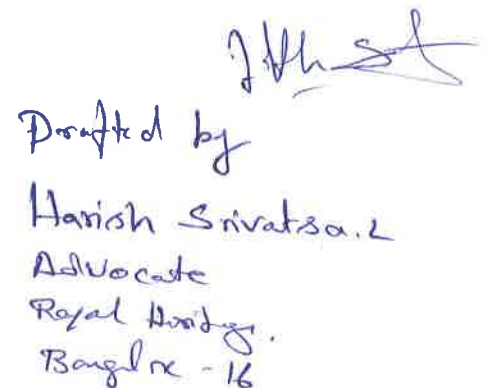 Drafted by
Harish Srivatsa.L
Advocate
Royal Heritage.
Bangalore - 16